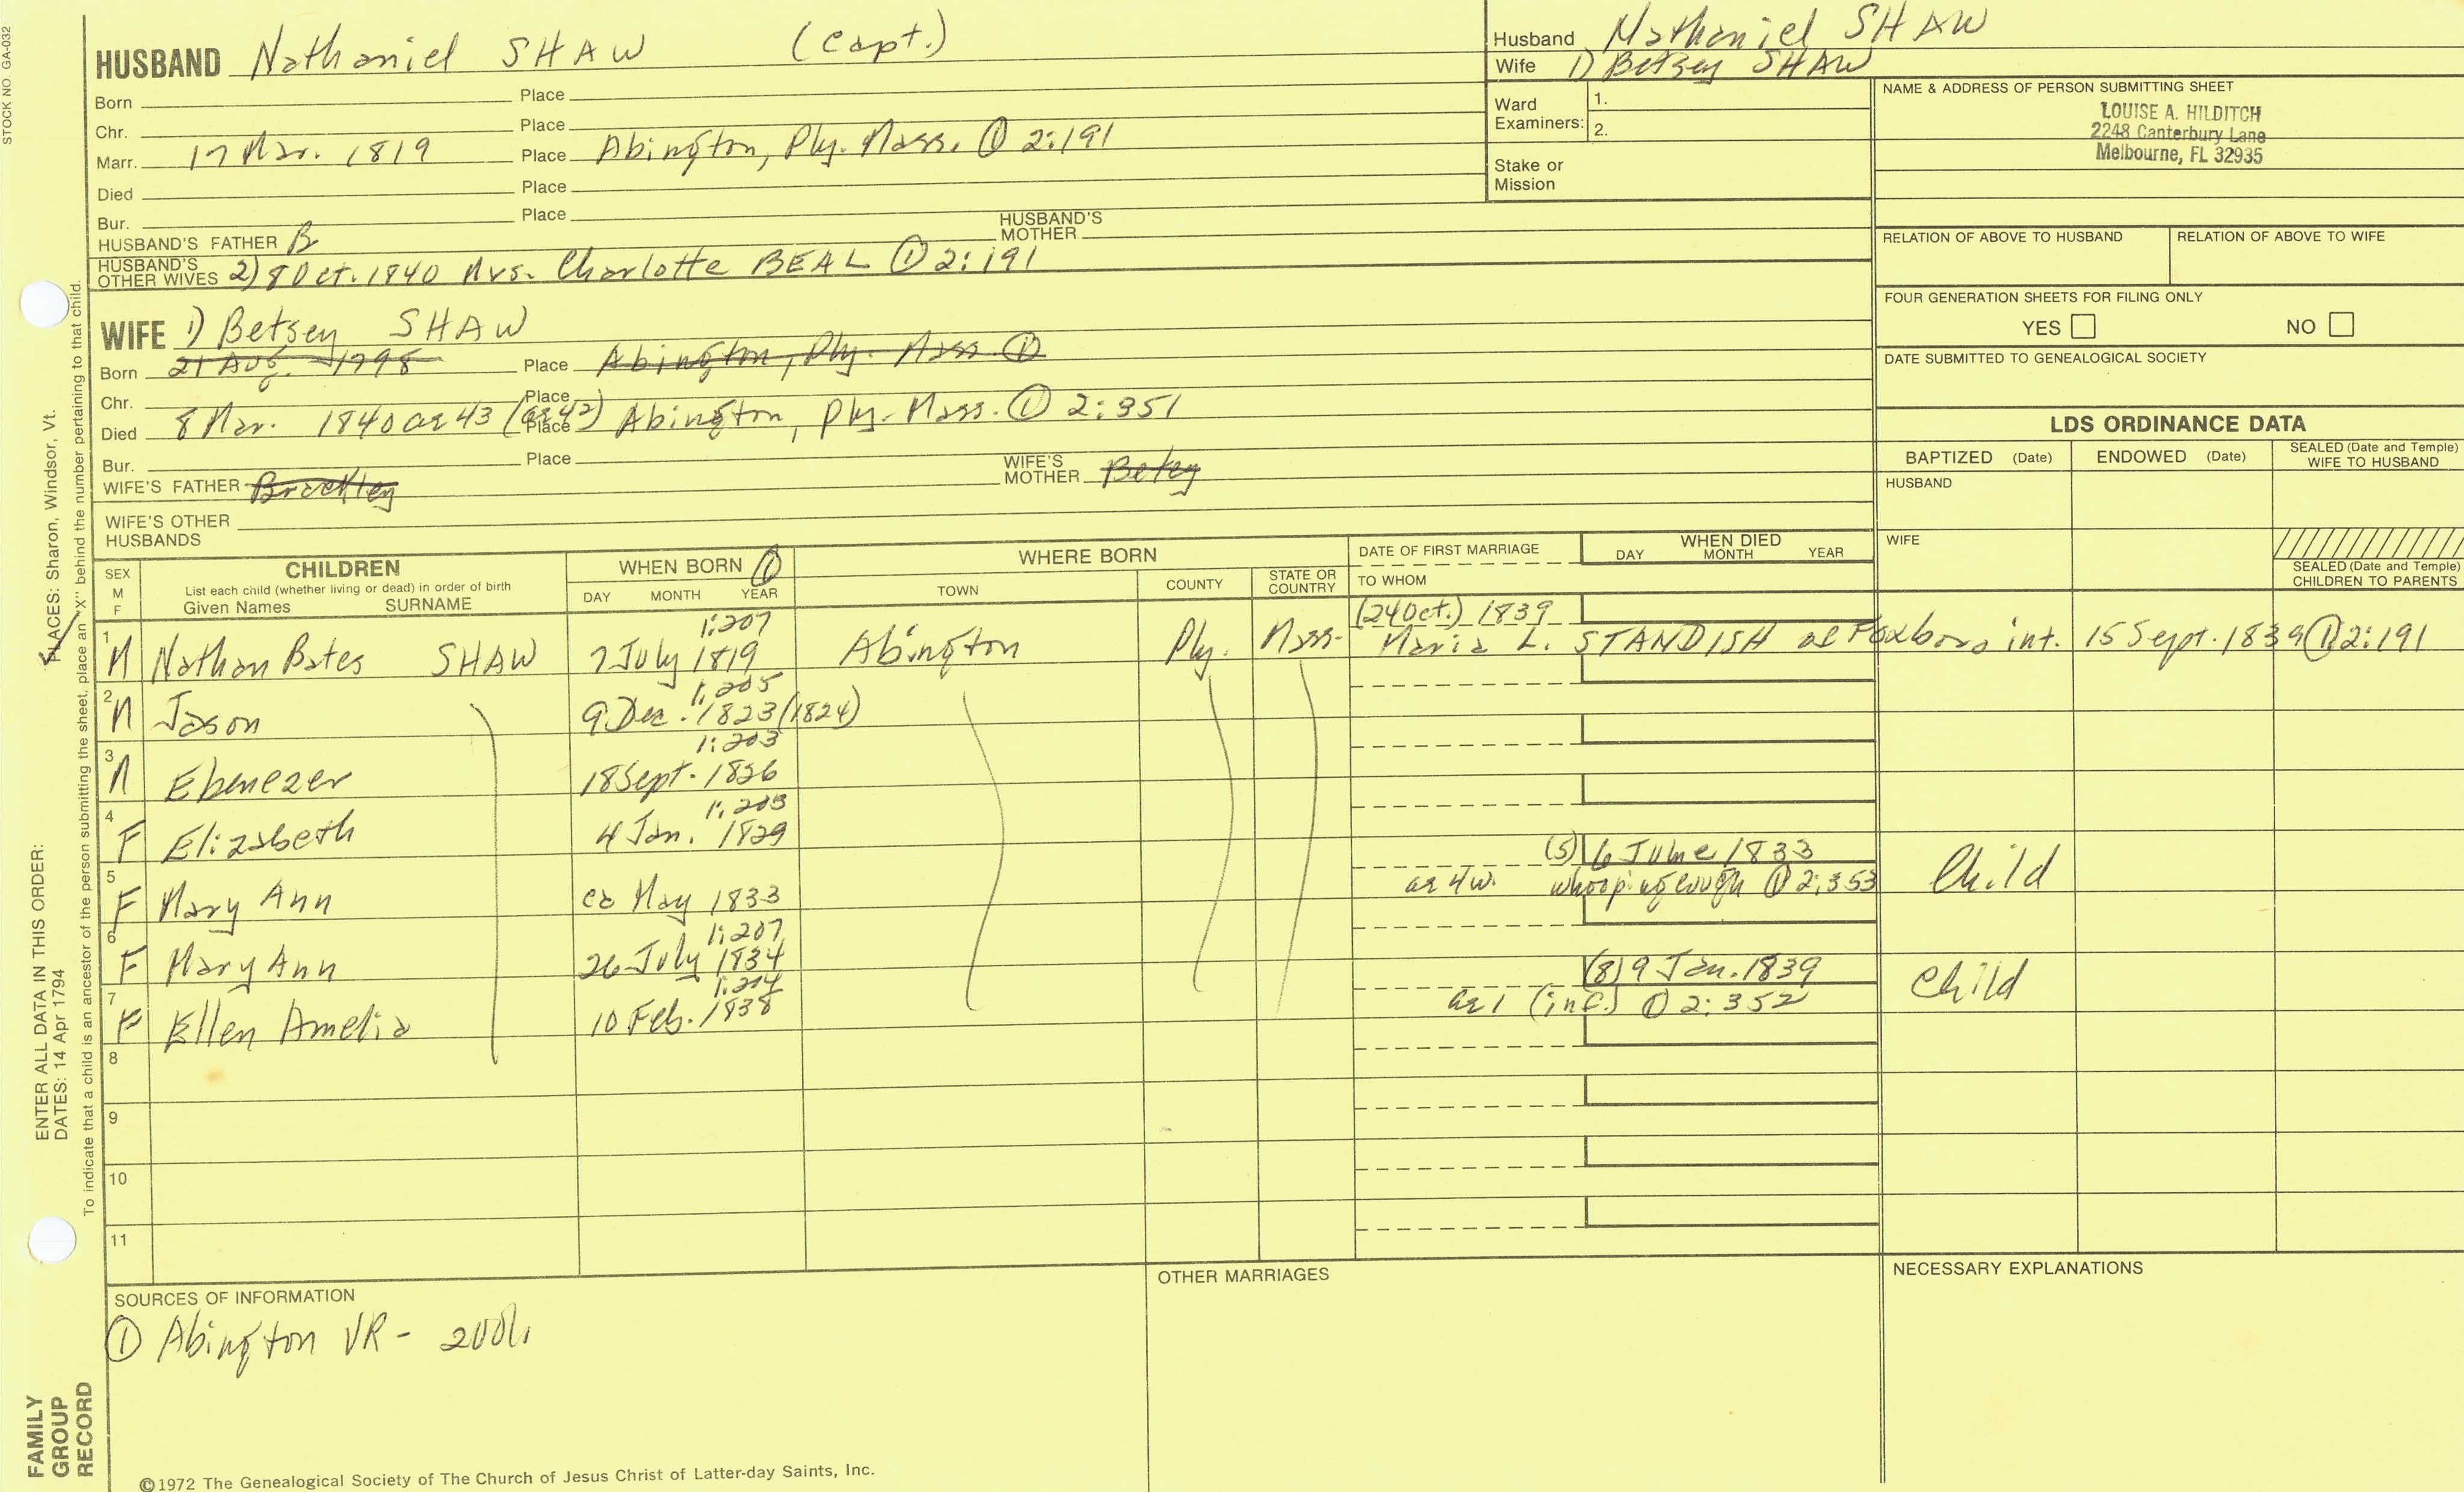 STOCK NO. GA-032
HUSBAND Nathaniel SHAW (Capt.)
Born Place
Chr. Place
Marr. 17 Mar. 1819 Place Abington, Ply. Mass. ① 2:191
Died Place
Bur. Place
HUSBAND'S FATHER B HUSBAND'S MOTHER
HUSBAND'S OTHER WIVES 2) 8 Oct. 1840 Mrs. Charlotte BEAL ① 2:191
WIFE 1) Betsey SHAW
Born 21 Aug. 1798 Place Abington, Ply. Mass. ①
Chr. Place
Died 8 Mar. 1840 ae 43 (ae 42) Place Abington, Ply. Mass. ① 2:351
Bur. Place
WIFE'S FATHER Brackley WIFE'S MOTHER Betsy
WIFE'S OTHER HUSBANDS
Husband Nathaniel SHAW
Wife 1) Betsey SHAW
Ward Examiners: 1.
2.
Stake or Mission
NAME & ADDRESS OF PERSON SUBMITTING SHEET
LOUISE A. HILDITCH
2248 Canterbury Lane
Melbourne, FL 32935
RELATION OF ABOVE TO HUSBAND RELATION OF ABOVE TO WIFE
FOUR GENERATION SHEETS FOR FILING ONLY
YES NO
DATE SUBMITTED TO GENEALOGICAL SOCIETY
LDS ORDINANCE DATA
BAPTIZED (Date) ENDOWED (Date) SEALED (Date and Temple) WIFE TO HUSBAND
HUSBAND
WIFE
SEALED (Date and Temple) CHILDREN TO PARENTS
SEX M F
CHILDREN
List each child (whether living or dead) in order of birth
Given Names SURNAME
WHEN BORN ①
DAY MONTH YEAR
WHERE BORN
TOWN COUNTY STATE OR COUNTRY
DATE OF FIRST MARRIAGE
TO WHOM
WHEN DIED
DAY MONTH YEAR
1:207 (24 Oct.) 1839
1 M Nathan Bates SHAW 7 July 1819 Abington Ply. Mass. Maria L. STANDISH of Foxboro int. 15 Sept. 1839 ① 2:191
1:205
2 M Jason 9 Dec. 1823 (1824)
1:203
3 M Ebenezer 18 Sept. 1826
1:203
4 F Elizabeth 4 Jan. 1829
(5) 6 June 1833
5 F Mary Ann ca May 1833 ae 4w. whooping cough ① 2:353 Child
1:207
6 F Mary Ann 26 July 1834
1:204 (8) 9 Jan. 1839
7 F Ellen Amelia 10 Feb. 1838 ae 1 (inf.) ① 2:352 Child
8
9
10
11
SOURCES OF INFORMATION
① Abington VR - 2vol.
OTHER MARRIAGES
NECESSARY EXPLANATIONS
©1972 The Genealogical Society of The Church of Jesus Christ of Latter-day Saints, Inc.
FAMILY GROUP RECORD
ENTER ALL DATA IN THIS ORDER:
DATES: 14 Apr 1794
PLACES: Sharon, Windsor, Vt.
To indicate that a child is an ancestor of the person submitting the sheet, place an "X" behind the number pertaining to that child.